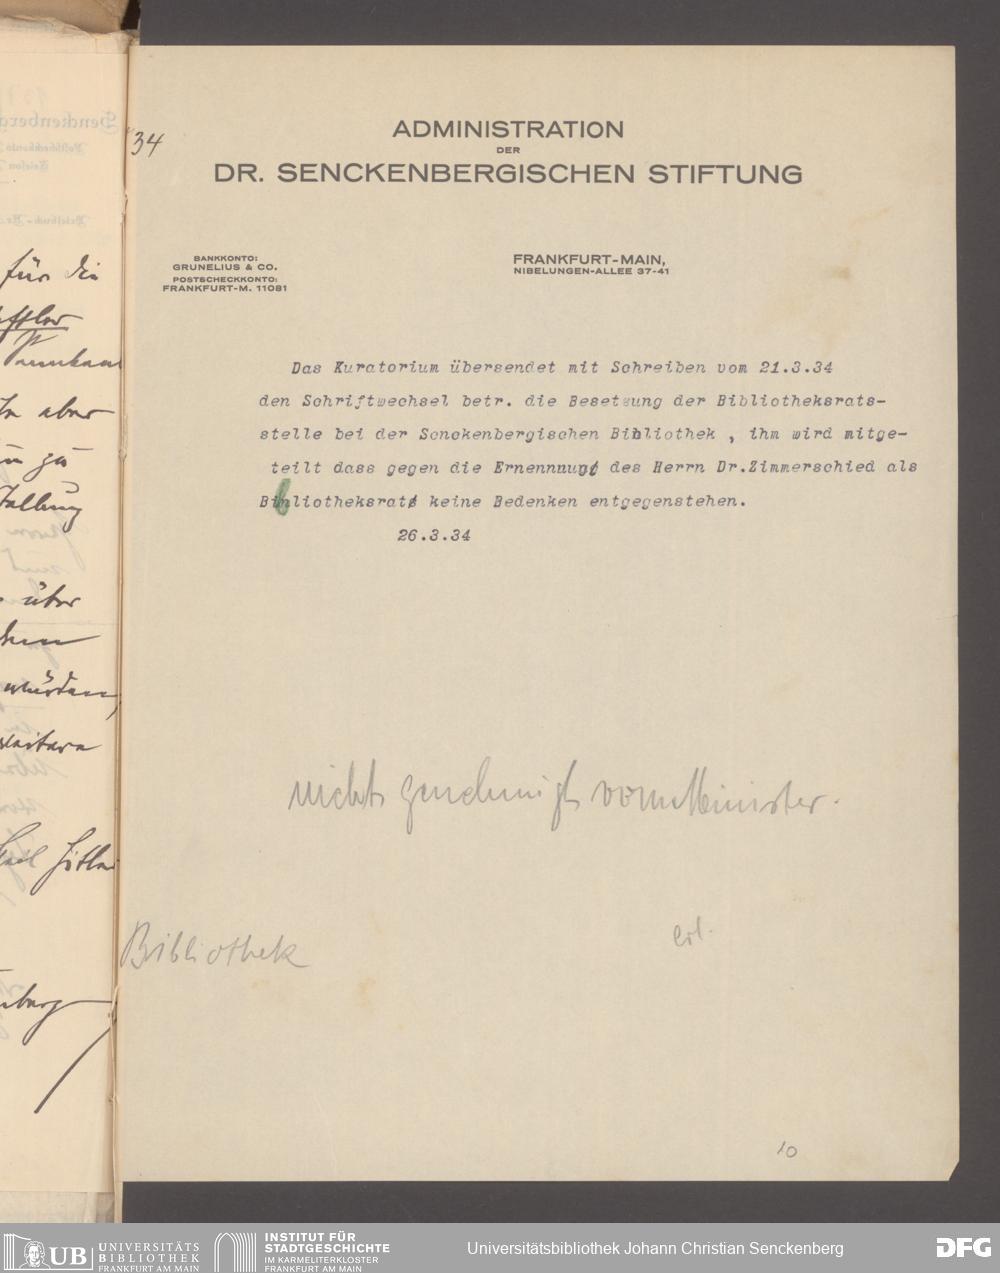 34
ADMINISTRATION
DER
DR. SENCKENBERGISCHEN STIFTUNG
BANKKONTO:
GRUNELIUS & CO.
POSTSCHECKKONTO:
FRANKFURT-M. 11081
FRANKFURT-MAIN,
NIBELUNGEN-ALLEE 37-41
Das Kuratorium übersendet mit Schreiben vom 21.3.34
den Schriftwechsel betr. die Besetzung der Bibliotheksrats-
stelle bei der Senckenbergischen Bibliothek , ihm wird mitge-
teilt dass gegen die Ernennnung des Herrn Dr.Zimmerschied als
Bibliotheksrat keine Bedenken entgegenstehen.
26.3.34
nicht genehmigt vom Minister.
Bibliothek
erl.
10
für die
aber
zu
über
UB UNIVERSITÄTS
BIBLIOTHEK
FRANKFURT AM MAIN
INSTITUT FÜR
STADTGESCHICHTE
IM KARMELITERKLOSTER
FRANKFURT AM MAIN
Universitätsbibliothek Johann Christian Senckenberg
DFG